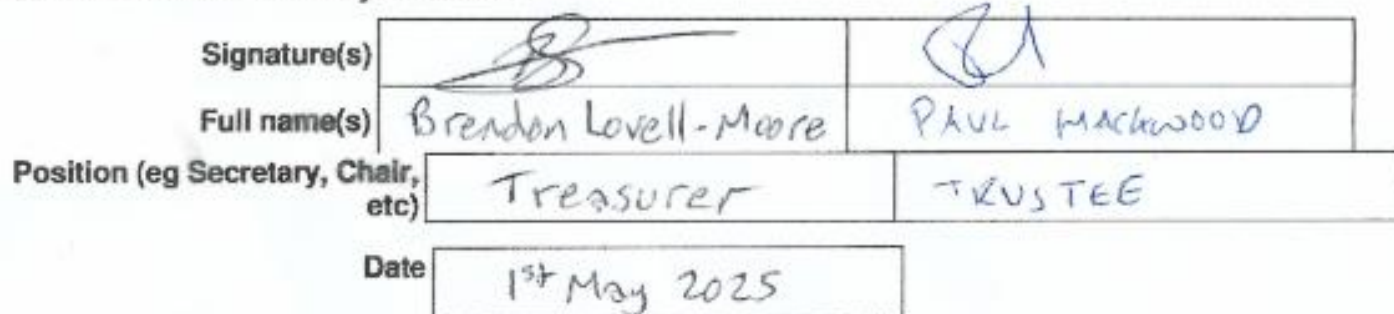 Signature(s)
Full name(s) Brendon Lovell-Moore PAUL MACKWOOD
Position (eg Secretary, Chair, etc) Treasurer TRUSTEE
Date 1st May 2025